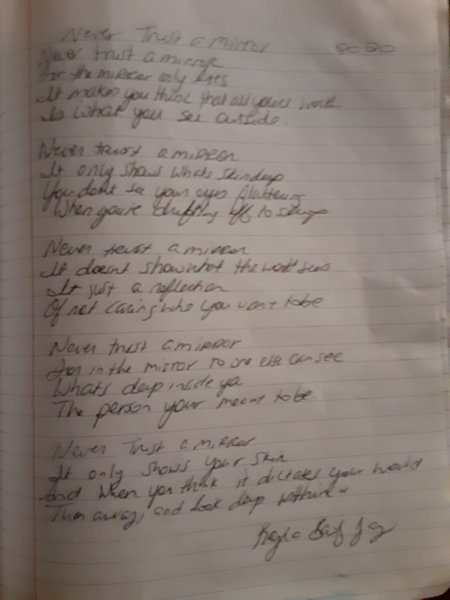 Never Trust a mirror
Never trust a mirror
For the mirror only lies
It makes you think that all your worth
Is What you see outside.
Never trust a mirror
It only shows whats skin deep
You dont see your eyes fluttering
When you're drifting off to sleep
Never trust a mirror
It doesnt show what the world sees
It just a reflection
Of not caring who you want to be
Never trust a mirror
in the mirror no one else can see
Whats deep inside ya
The person your meant to be
Never Trust a mirror
It only shows your skin
And when you think it dictates your world
away, and look deep within